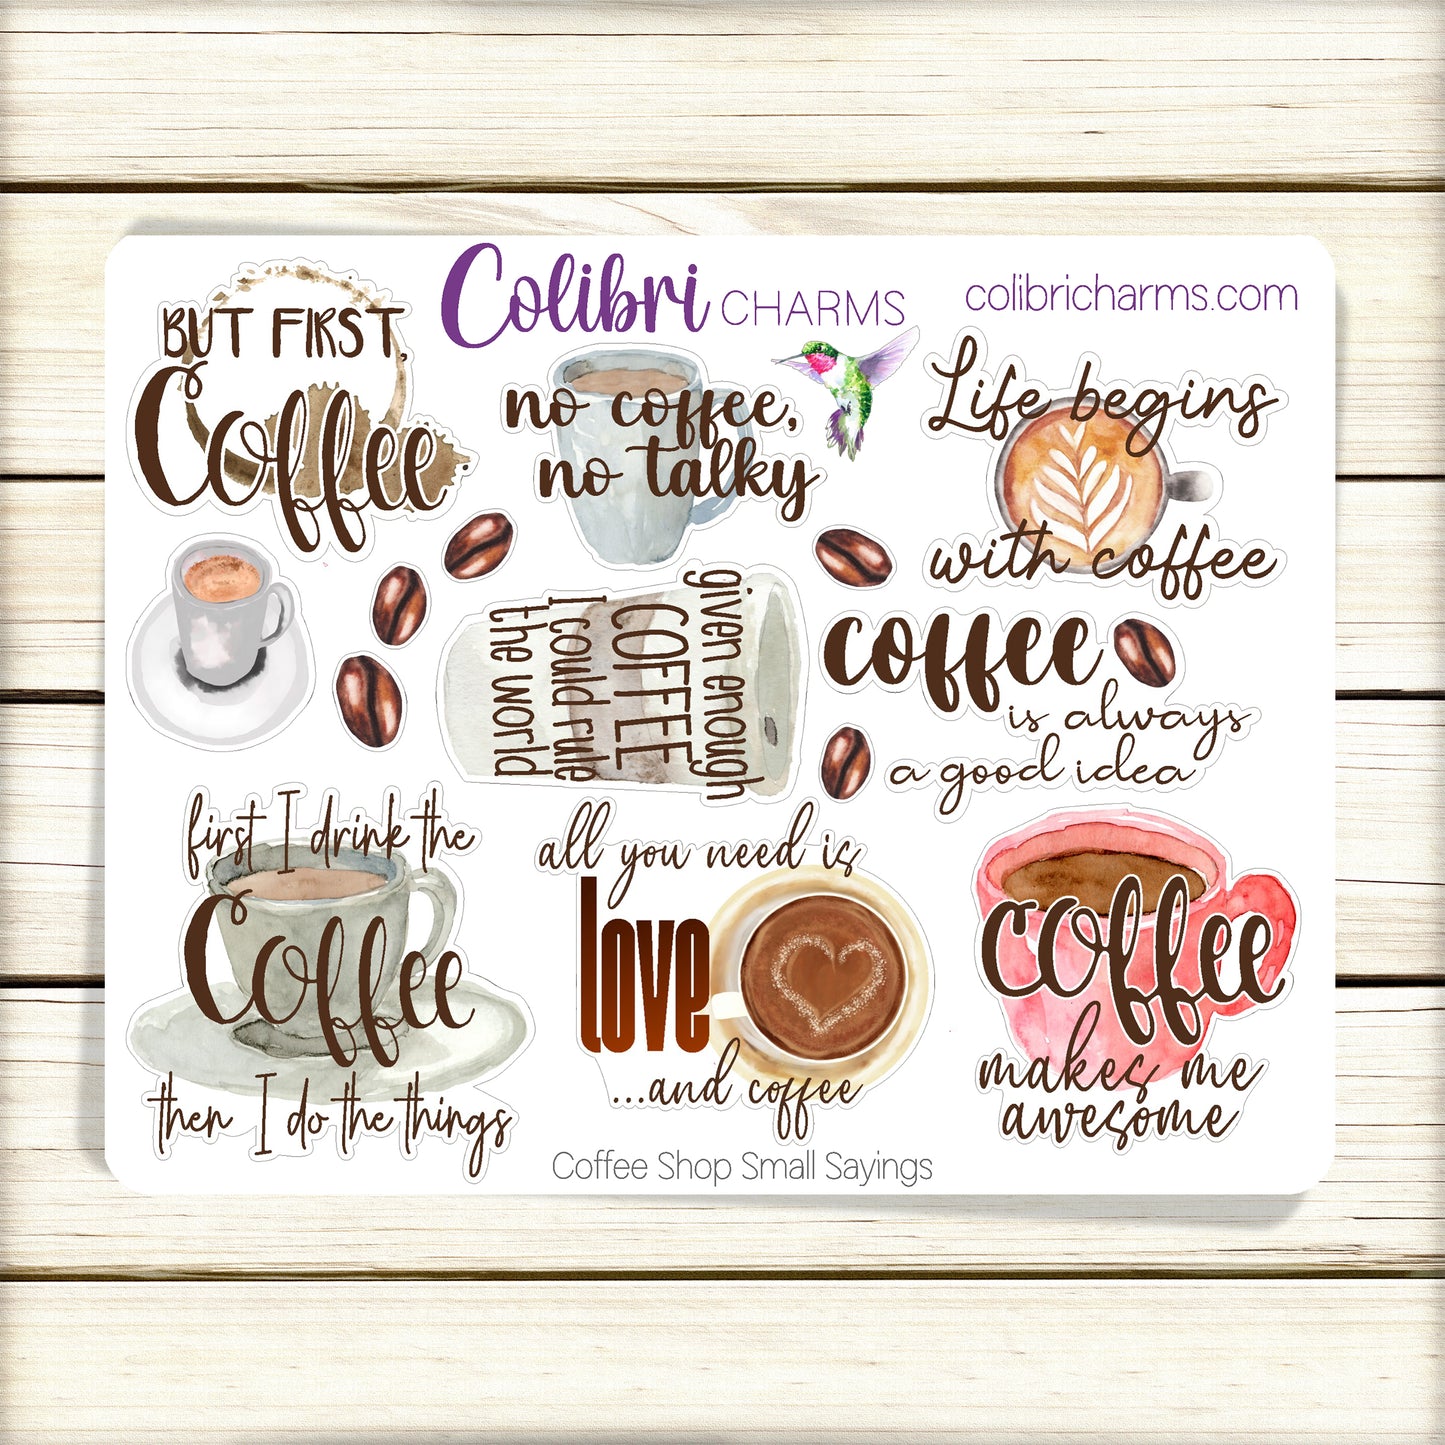 Colibri CHARMS
colibricharms.com
BUT FIRST,
Coffee
no coffee,
no talky
Life begins
with coffee
given enough
COFFEE
I could rule
the world
coffee
is always
a good idea
first I drink the
Coffee
then I do the things
all you need is
love
...and coffee
coffee
makes me
awesome
Coffee Shop Small Sayings